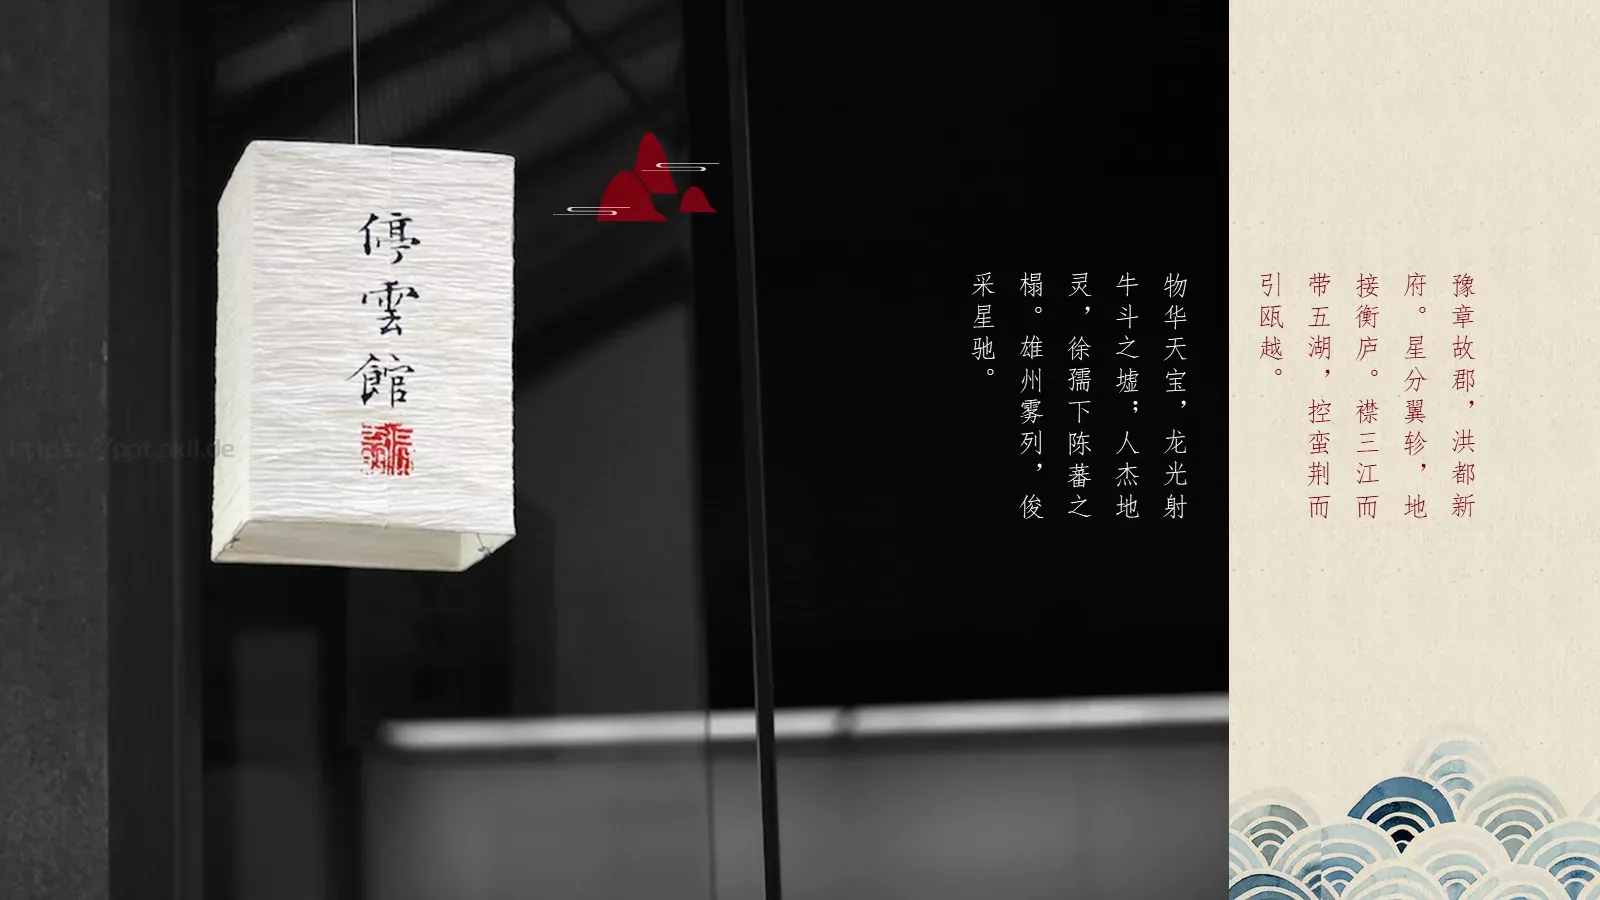 豫章故郡，洪都新
府。星分翼轸，地
接衡庐。襟三江而
带五湖，控蛮荆而
引瓯越。
物华天宝，龙光射
牛斗之墟；人杰地
灵，徐孺下陈蕃之
榻。雄州雾列，俊
采星驰。
停雲館
https://ppt.pkll.de